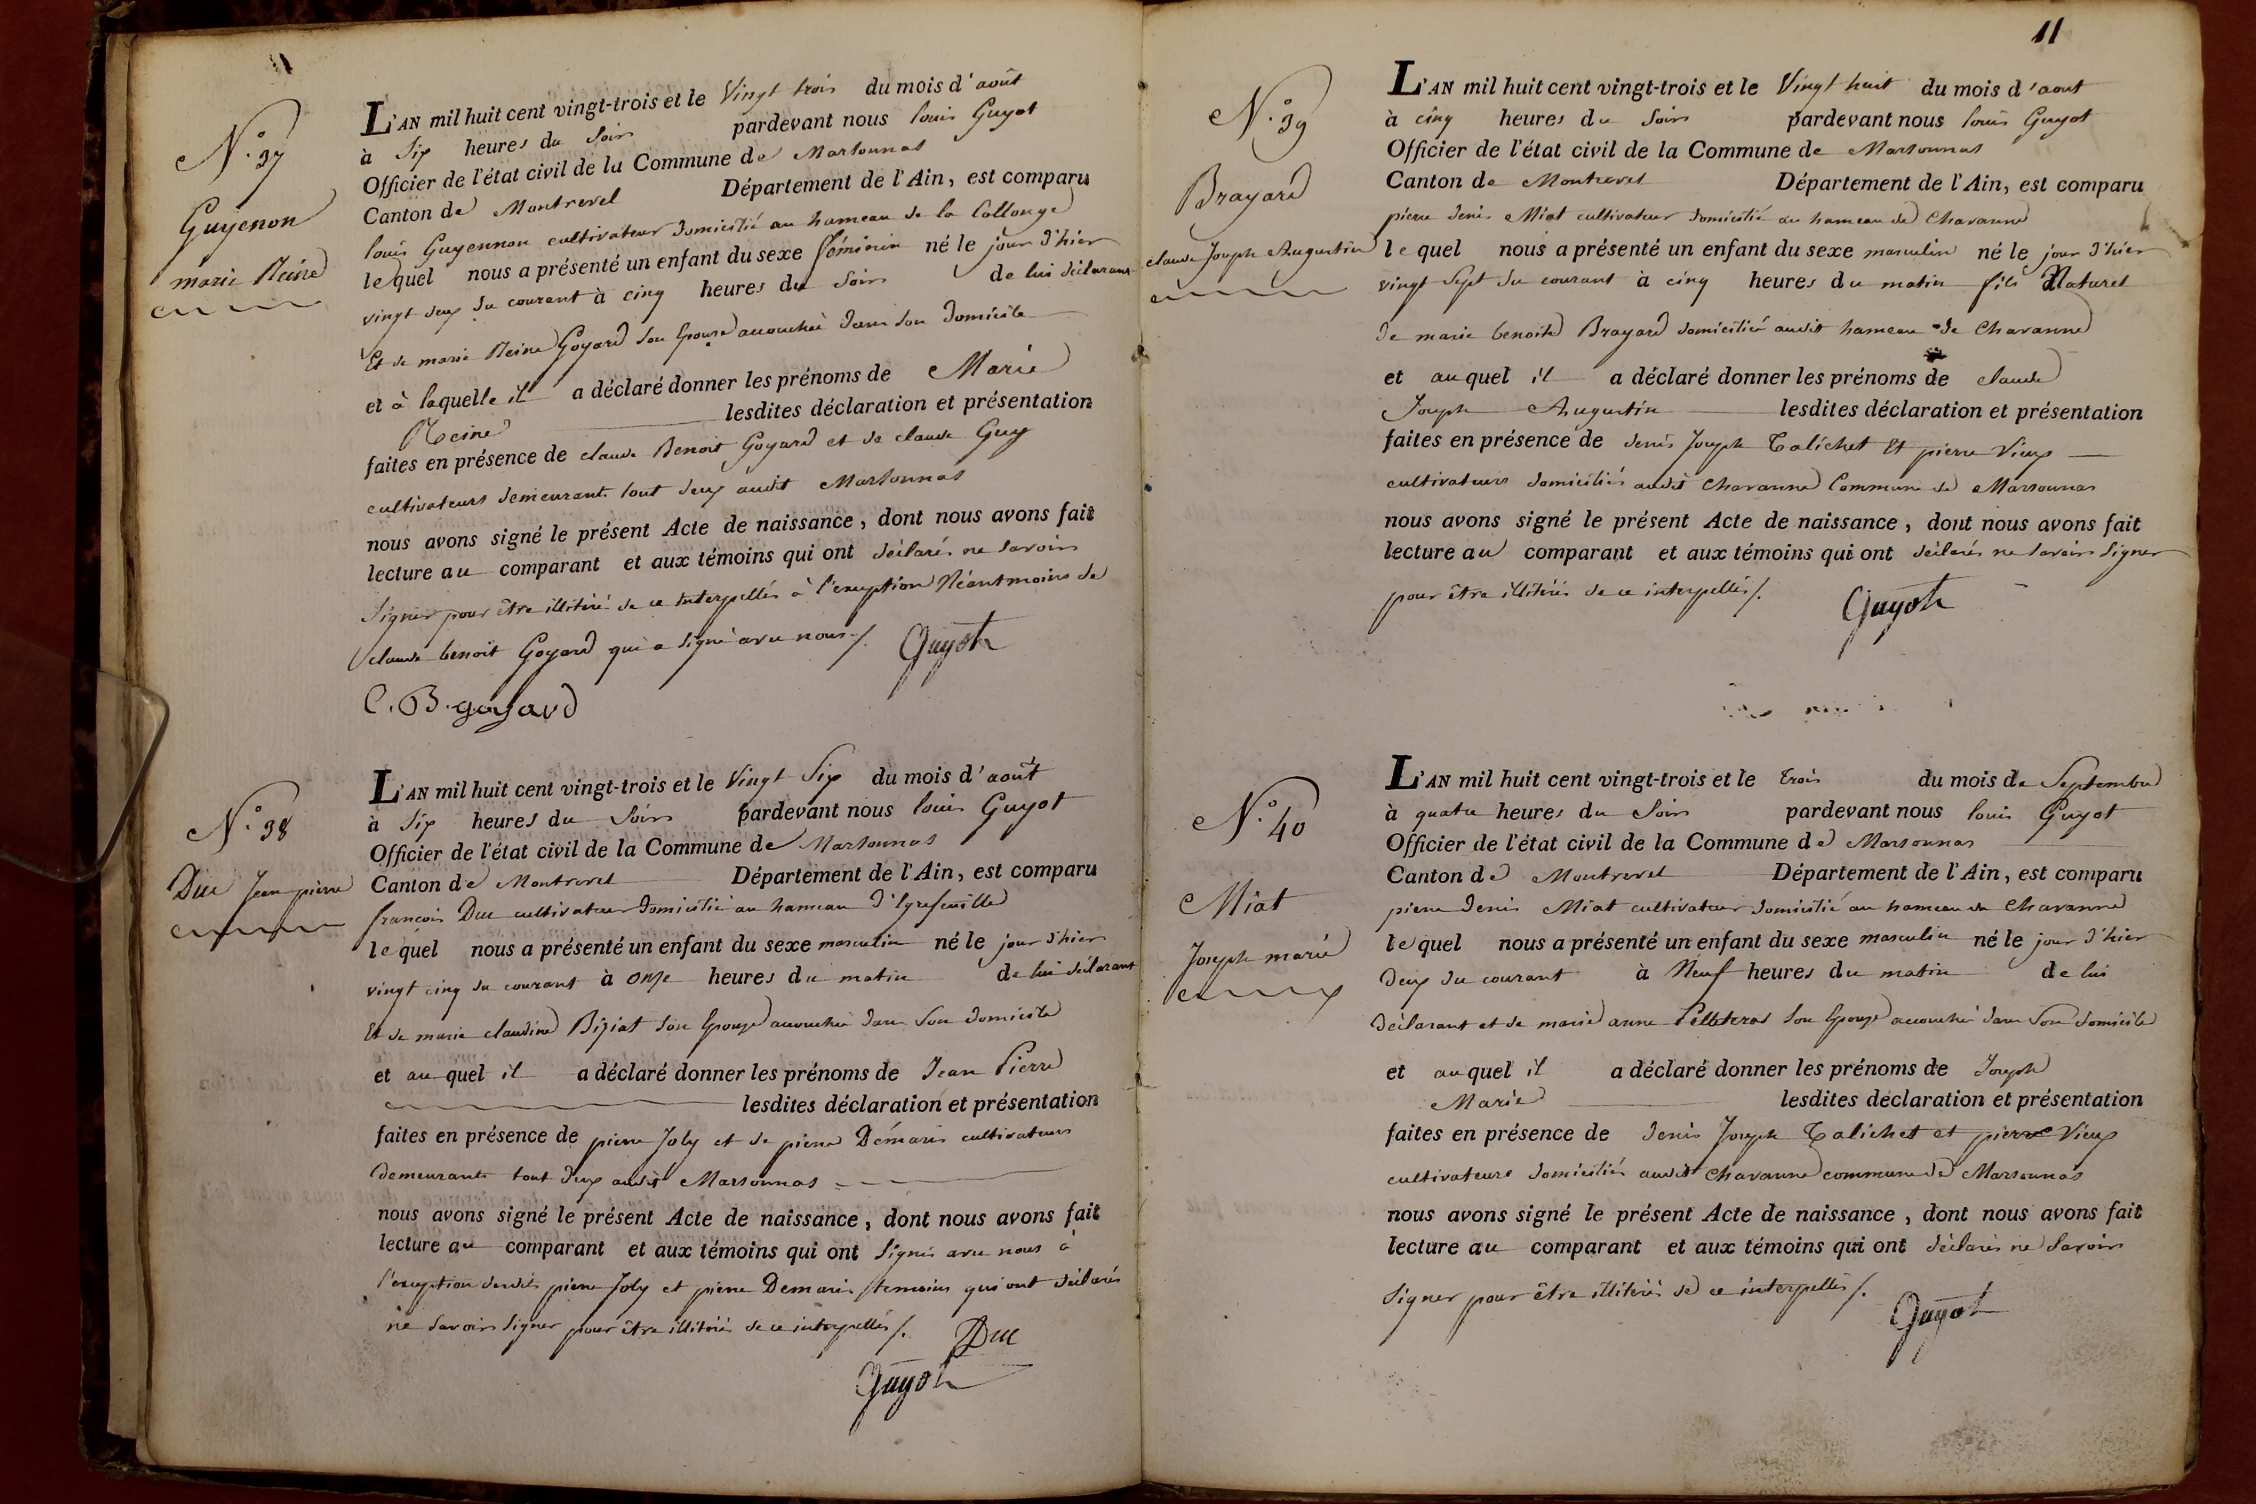 N.° 37
Guyenon
marie Reine
L'AN mil huit cent vingt-trois et le Vingt trois du mois d'août
à Six heures du Soir pardevant nous louis Guyot
Officier de l'état civil de la Commune de Marsonnas
Canton de Montrevel Département de l'Ain, est comparu
louis Guyennon cultivateur domicilié au hameau de la Collonge
lequel nous a présenté un enfant du sexe féminin né le jour d'hier
vingt deux du courant à cinq heures du Soir de lui déclarant
Et de marie Reine Goyard son Epouse accouchée dans son domicile
et à laquelle il a déclaré donner les prénoms de Marie
Reine lesdites déclaration et présentation
faites en présence de claude Benoit Goyard et de claude Guy
cultivateurs demeurants tout deux audit Marsonnas
nous avons signé le présent Acte de naissance, dont nous avons fait
lecture au comparant et aux témoins qui ont déclarés ne Savoir
Signer pour être illitérés de ce interpellés à l'exception Néantmoins de
claude benoit Goyard qui a signé avec nous /. Guyot
C. B. goyard
N.° 38
Duc Jean pierre
L'AN mil huit cent vingt-trois et le Vingt Six du mois d'août
à Six heures du Soir pardevant nous louis Guyot
Officier de l'état civil de la Commune de Marsonnas
Canton de Montrevel Département de l'Ain, est comparu
françois Duc cultivateur domicilié au hameau
lequel nous a présenté un enfant du sexe masculin né le jour d'hier
vingt cinq du courant à onze heures du matin de lui déclarant
Et de marie claudine Biziat Son Epouse accouchée dans Son domicile
et auquel il a déclaré donner les prénoms de Jean Pierre
lesdites déclaration et présentation
faites en présence de pierre Joly et de pierre Démaris cultivateurs
demeurants tout deux audit Marsonnas
nous avons signé le présent Acte de naissance, dont nous avons fait
lecture au comparant et aux témoins qui ont Signés avec nous à
l'exception desdits pierre Joly et pierre Demaris temoins qui ont déclarés
ne Savoir Signer pour être illitérés de ce interpellés /. Duc
Guyot
11
N.° 39
Brayard
claude Joseph Augustin
L'AN mil huit cent vingt-trois et le Vingt huit du mois d'aout
à cinq heures du Soir pardevant nous louis Guyot
Officier de l'état civil de la Commune de Marsonnas
Canton de Montrevel Département de l'Ain, est comparu
pierre denis Miat cultivateur domicilié au hameau de Chavanne
lequel nous a présenté un enfant du sexe masculin né le jour d'hier
vingt Sept du courant à cinq heures du matin fils Naturel
de marie benoite Brayard domiciliée audit hameau de Chavanne
et auquel il a déclaré donner les prénoms de claude
Joseph Augustin lesdites déclaration et présentation
faites en présence de denis Joseph Talichet Et pierre Vieux
cultivateurs domiciliés audit Chavanne Commune de Marsonnas
nous avons signé le présent Acte de naissance, dont nous avons fait
lecture au comparant et aux témoins qui ont déclarés ne Savoir Signer
pour être illitérés de ce interpellés /. Guyot
N.° 40
Miat
Joseph marie
L'AN mil huit cent vingt-trois et le trois du mois de Septembre
à quatre heures du Soir pardevant nous louis Guyot
Officier de l'état civil de la Commune de Marsonnas
Canton de Montrevel Département de l'Ain, est comparu
pierre denis Miat cultivateur domicilié au hameau de Chavanne
lequel nous a présenté un enfant du sexe masculin né le jour d'hier
deux du courant à Neuf heures du matin de lui
déclarant et de marie anne Son Epouse accouchée dans Son domicile
et auquel il a déclaré donner les prénoms de Joseph
Marie lesdites déclaration et présentation
faites en présence de denis Joseph Talichet et pierre Vieux
cultivateurs domiciliés audit Chavanne commune de Marsonnas
nous avons signé le présent Acte de naissance, dont nous avons fait
lecture au comparant et aux témoins qui ont déclarés ne Savoir
Signer pour être illitérés de ce interpellés /. Guyot